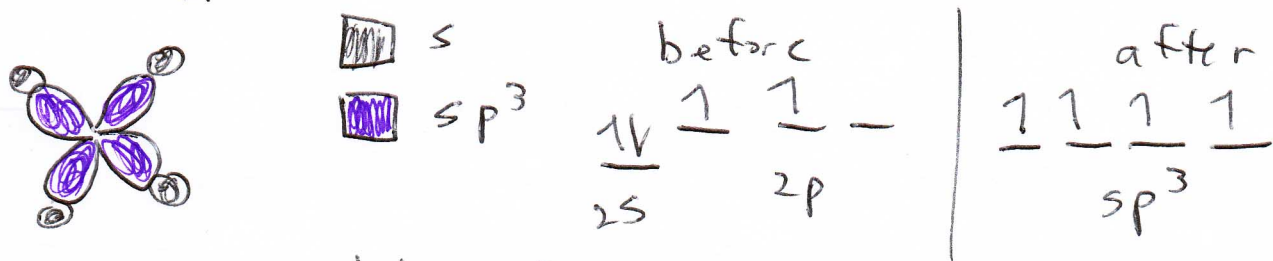 s
sp³
before
1 1
1V
2s
2p
after
1 1 1 1
sp³